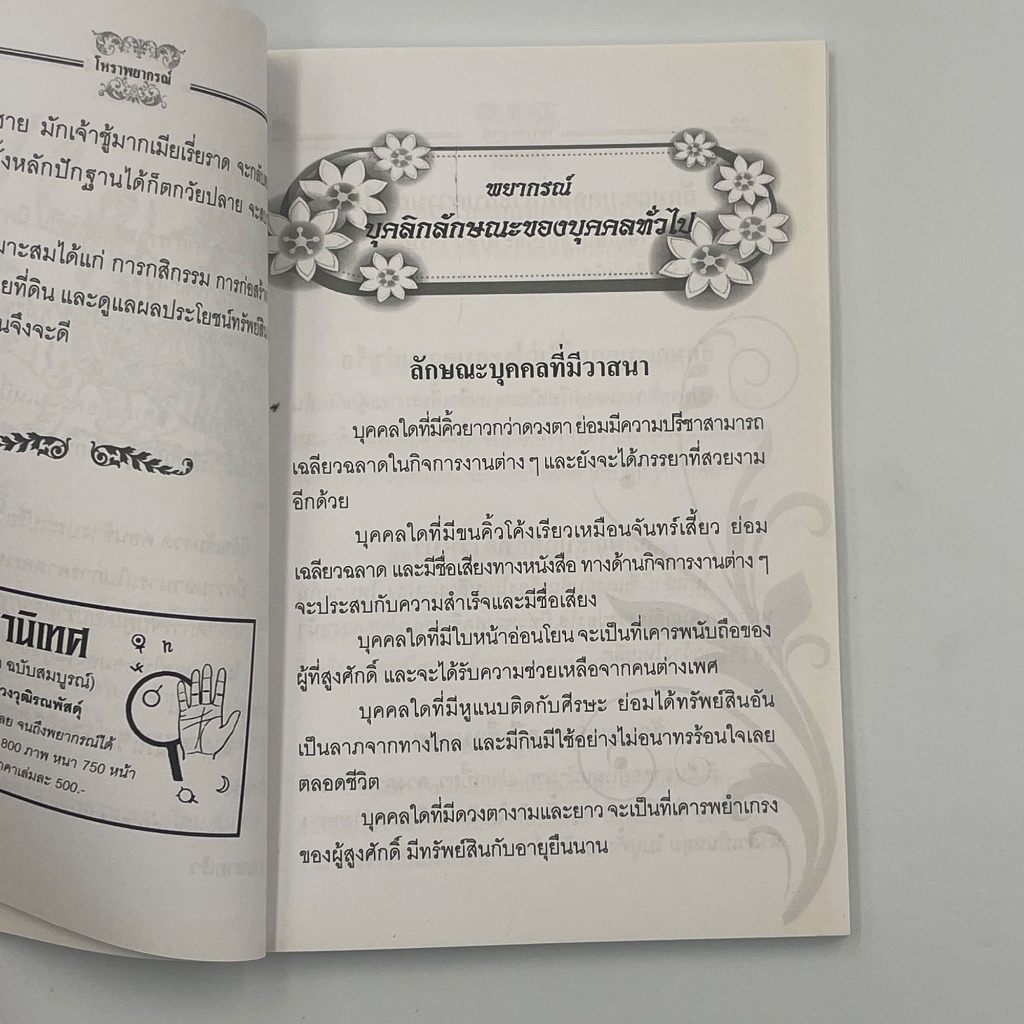 โหราพยากรณ์
ชาย มักเจ้าชู้มากเมียเรี่ยราด จะกลับ
หลักปักฐานได้ก็ตกวัยปลาย
ได้แก่ การกสิกรรม การก่อสร้าง
ที่ดิน และดูแลผลประโยชน์ทรัพย์สิน
จึงจะดี
านิเทศ
ฉบับสมบูรณ์)
วงวุฒิรณพัสดุ์
ลย จนถึงพยากรณ์ได้
800 ภาพ หนา 750 หน้า
าคาเล่มละ 500.-
พยากรณ์
บุคลิกลักษณะของบุคคลทั่วไป
ลักษณะบุคคลที่มีวาสนา
บุคคลใดที่มีคิ้วยาวกว่าดวงตา ย่อมมีความปรีชาสามารถ
เฉลียวฉลาดในกิจการงานต่าง ๆ และยังจะได้ภรรยาที่สวยงาม
อีกด้วย
บุคคลใดที่มีขนคิ้วโค้งเรียวเหมือนจันทร์เสี้ยว ย่อม
เฉลียวฉลาด และมีชื่อเสียงทางหนังสือ ทางด้านกิจการงานต่าง ๆ
จะประสบกับความสำเร็จและมีชื่อเสียง
บุคคลใดที่มีใบหน้าอ่อนโยน จะเป็นที่เคารพนับถือของ
ผู้ที่สูงศักดิ์ และจะได้รับความช่วยเหลือจากคนต่างเพศ
บุคคลใดที่มีหูแนบติดกับศีรษะ ย่อมได้ทรัพย์สินอัน
เป็นลาภจากทางไกล และมีกินมีใช้อย่างไม่อนาทรร้อนใจเลย
ตลอดชีวิต
บุคคลใดที่มีดวงตางามและยาว จะเป็นที่เคารพยำเกรง
ของผู้สูงศักดิ์ มีทรัพย์สินกับอายุยืนนาน